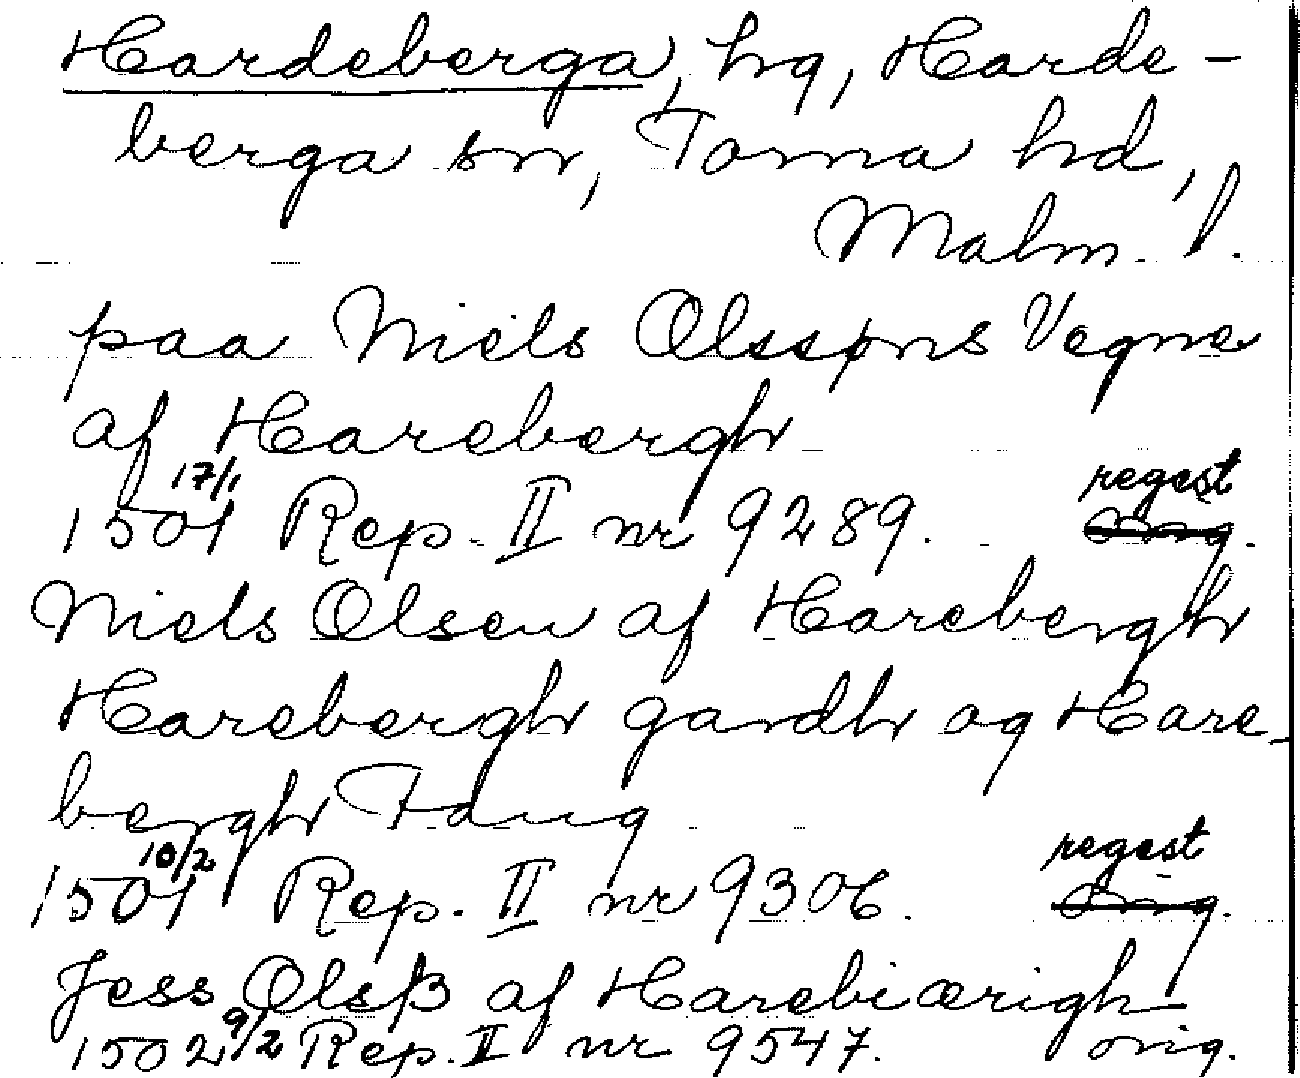 Hardeberga, hg, Harde-
berga sn, Torna hd,
Malm. l.
paa Niels Olsspns Vegne
af Harebergh
17/1 regest
1501 Rep. II nr 9289. orig.
Niels Olsen af Harebergh
Harebergh gardh og Hare-
bergh Fang
10/2 regest
1501 Rep. II nr 9306. orig.
Jess Olsß af Harebiærigh
1502 9/2 Rep. II nr 9547. orig.